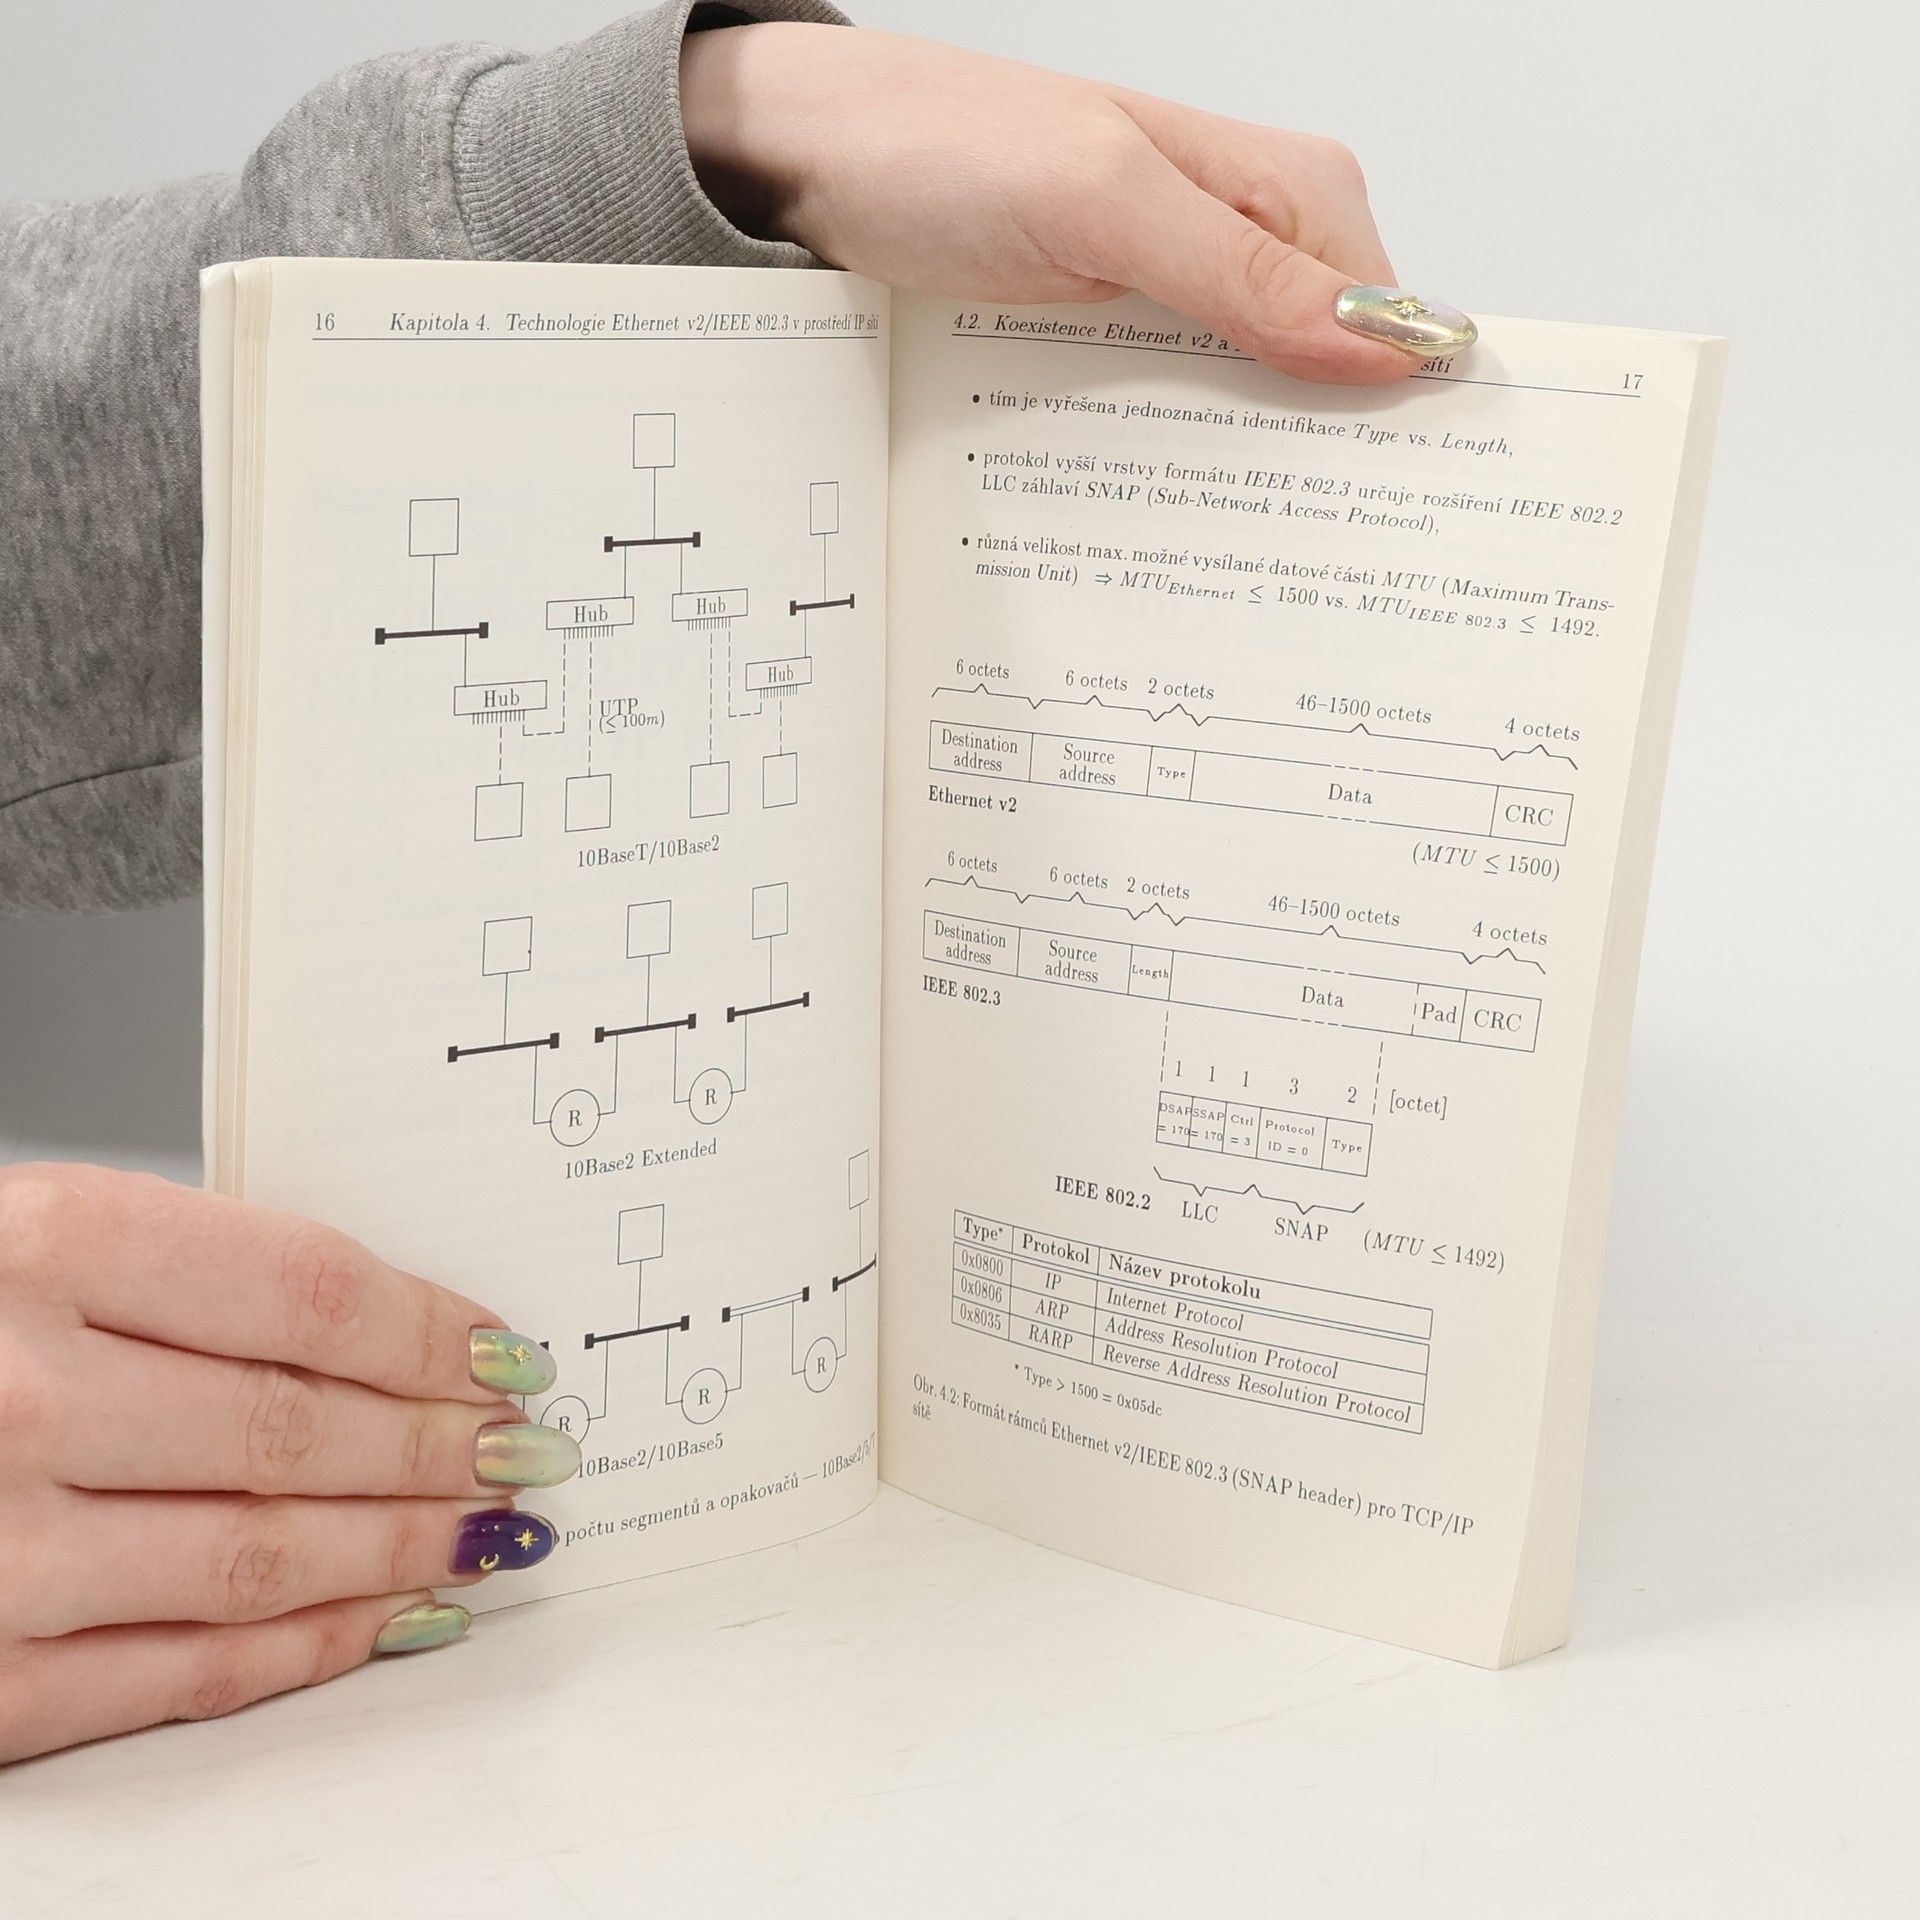 16 Kapitola 4. Technologie Ethernet v2/IEEE 802.3 v prostředí IP sítí
Hub
Hub
Hub
Hub
UTP
(≤ 100m)
10BaseT/10Base2
R
R
10Base2 Extended
R
R
R
10Base2/10Base5
počtu segmentů a opakovačů — 10Base2/5/T
4.2. Koexistence Ethernet v2 a
sítí 17
• tím je vyřešena jednoznačná identifikace Type vs. Length,
• protokol vyšší vrstvy formátu IEEE 802.3 určuje rozšíření IEEE 802.2
LLC záhlaví SNAP (Sub-Network Access Protocol),
• různá velikost max. možné vysílané datové části MTU (Maximum Trans-
mission Unit) ⇒ MTU_Ethernet ≤ 1500 vs. MTU_IEEE 802.3 ≤ 1492.
6 octets 6 octets 2 octets 46–1500 octets 4 octets
Destination address Source address Type Data CRC
Ethernet v2
(MTU ≤ 1500)
6 octets 6 octets 2 octets 46–1500 octets 4 octets
Destination address Source address Length Data Pad CRC
IEEE 802.3
1 1 1 3 2 [octet]
DSAP = 170 SSAP = 170 Ctrl = 3 Protocol ID = 0 Type
IEEE 802.2 LLC SNAP (MTU ≤ 1492)
Type* Protokol Název protokolu
0x0800 IP Internet Protocol
0x0806 ARP Address Resolution Protocol
0x8035 RARP Reverse Address Resolution Protocol
* Type > 1500 = 0x05dc
Obr. 4.2: Formát rámců Ethernet v2/IEEE 802.3 (SNAP header) pro TCP/IP
sítě